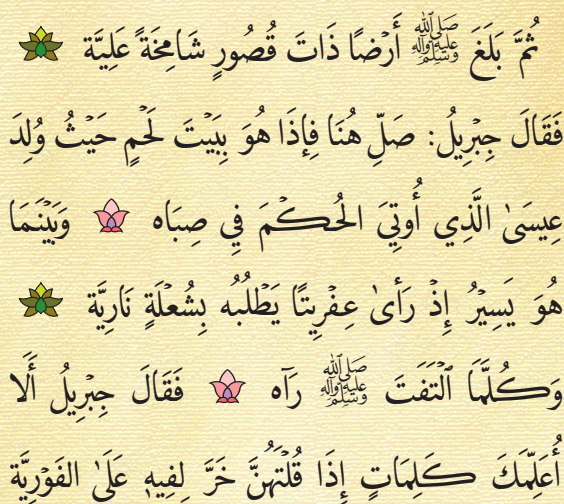 ثُمَّ بَلَغَ ﷺ أَرْضًا ذَاتَ قُصُورٍ شَامِخَةً عَلِيَّة
فَقَالَ جِبْرِيلُ: صَلِّ هُنَا فِإذَا هُوَ بِبَيْتَ لَحْمٍ حَيْثُ وُلِدَ
عِيسَىٰ الَّذِي أُوتِيَ الْحُكْمَ فِي صِبَاه وَبَيْنَمَا
هُوَ يَسِيْرُ إِذْ رَأَىٰ عِفْرِيتًا يَطْلُبُه بِشُعْلَةٍ نَارِيَّة
وَكُلَّمَا الْتَفَتَ ﷺ رَآه فَقَالَ جِبْرِيلُ أَلَا
أُعَلِّمَكَ كَلِمَاتٍ إِذَا قُلْتَهُنَّ خَرَّ لِفِيهِ عَلَىٰ الفَوْرِيَّة